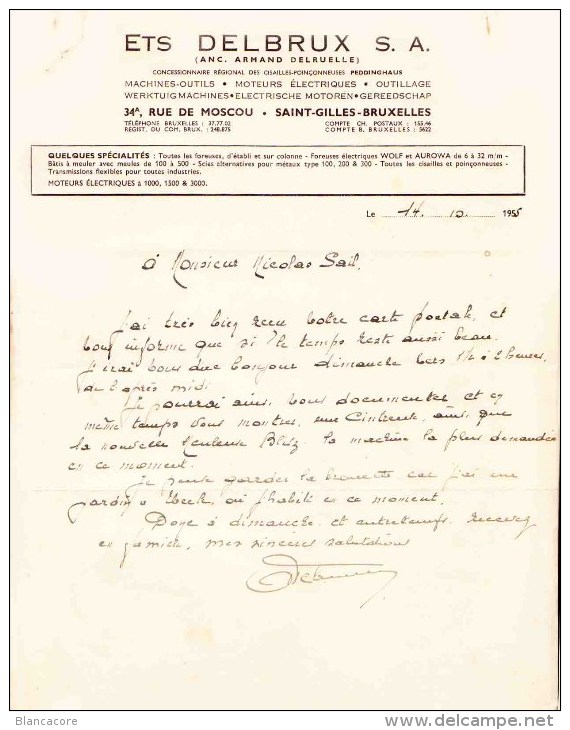 ETS DELBRUX S. A.
(ANC. ARMAND DELRUELLE)
CONCESSIONNAIRE RÉGIONAL DES CISAILLES-POINÇONNEUSES PEDDINGHAUS
MACHINES-OUTILS • MOTEURS ÉLECTRIQUES • OUTILLAGE
WERKTUIGMACHINES • ELECTRISCHE MOTOREN • GEREEDSCHAP
34A, RUE DE MOSCOU • SAINT-GILLES-BRUXELLES
TÉLÉPHONE BRUXELLES : 37.77.02 COMPTE CH. POSTAUX : 155.46
REGIST. DU COM. BRUX. : 248.875 COMPTE B. BRUXELLES : 5622
QUELQUES SPÉCIALITÉS : Toutes les foreuses, d'établi et sur colonne - Foreuses électriques WOLF et AUROWA de 6 à 32 m/m -
Bâtis à meuler avec meules de 100 à 500 - Scies alternatives pour métaux type 100, 200 & 300 - Toutes les cisailles et poinçonneuses -
Transmissions flexibles pour toutes industries.
MOTEURS ÉLECTRIQUES à 1000, 1500 & 3000.
Le 14. 10. 1955
à Monsieur Nicolas Sail.
J'ai très bien reçu votre carte postale, et
vous informe que si le temps reste aussi beau.
J'irai vous dire bonjour dimanche vers 1/2 à 2 heures,
de l'après midi.
Je pourrai ainsi vous documenter et en
même temps vous montrer une Cintreuse, ainsi que
la nouvelle Blitz la machine la plus demandée
en ce moment.
Je garder la brouette car j'ai un
jardin à où j'habite en ce moment.
Donc à dimanche et entretemps recevez
en mes sincères salutations
Blancacore
www.delcampe.net